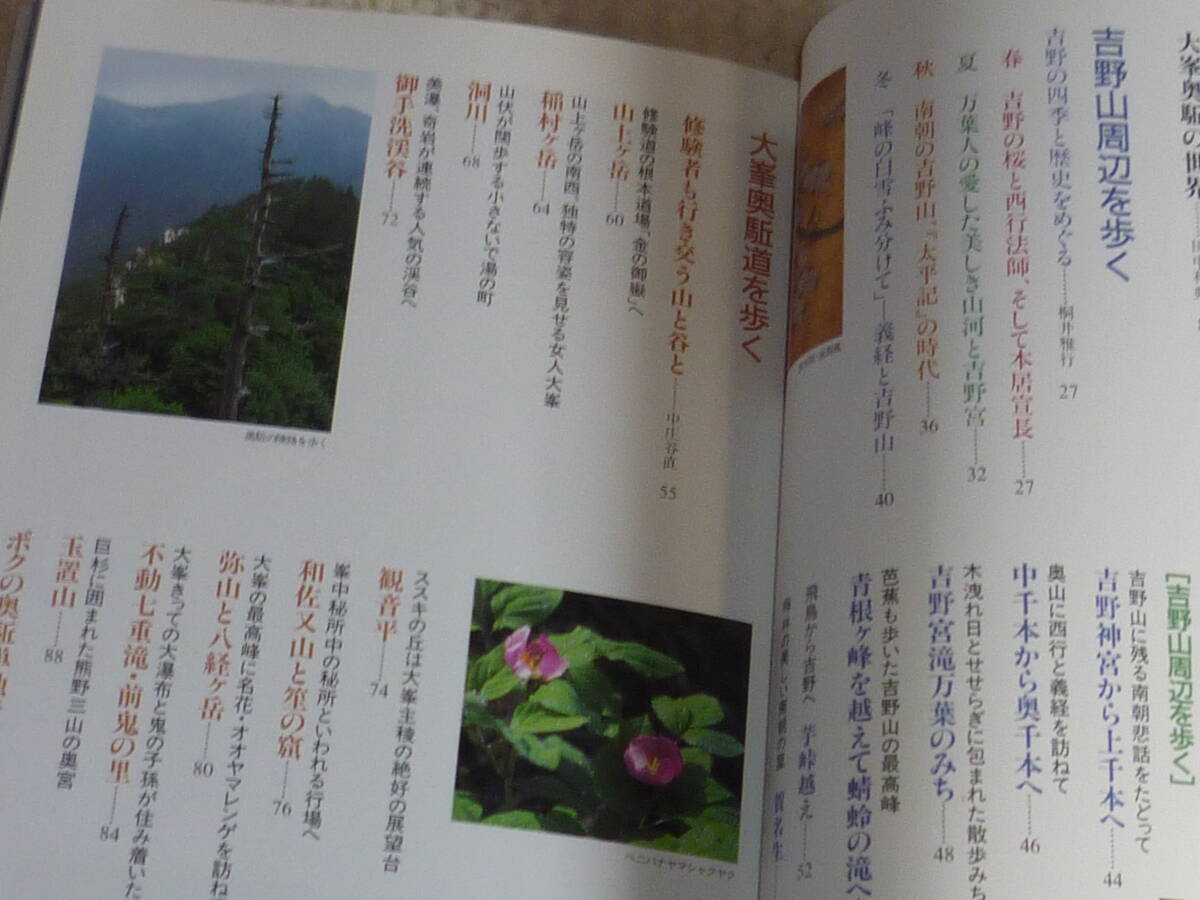 大峯奥駈の世界
吉野山周辺を歩く
吉野の四季と歴史をめぐる………桐井雅行 27
春 吉野の桜と西行法師、そして本居宣長………27
夏 万葉人の愛した美しき山河と吉野宮………32
秋 南朝の吉野山、『太平記』の時代………36
冬 「峰の白雪ふみ分けて」―義経と吉野山………40
[吉野山周辺を歩く]
吉野山に残る南朝悲話をたどって
吉野神宮から上千本へ………44
奥山に西行と義経を訪ねて
中千本から奥千本へ………46
木洩れ日とせせらぎに包まれた散歩みち
吉野宮滝万葉のみち………48
芭蕉も歩いた吉野山の最高峰
青根ヶ峰を越えて蜻蛉の滝へ
飛鳥から吉野へ 芋峠越え………52
大峯奥駈道を歩く
修験者も行き交う山と谷と………中庄谷直 55
修験道の根本道場、金の御嶽へ
山上ヶ岳………60
山上ヶ岳の南西、独特の容姿を見せる女人大峯
稲村ヶ岳………64
山伏が闊歩する小さないで湯の町
洞川………68
美瀑、奇岩が連続する人気の渓谷へ
御手洗渓谷………72
ススキの丘は大峯主稜の絶好の展望台
観音平………74
峯中秘所中の秘所といわれる行場へ
和佐又山と笙の窟………76
大峯の最高峰に名花・オオヤマレンゲを訪ね
弥山と八経ヶ岳………80
大峯きっての大瀑布と鬼の子孫が住み着いた
不動七重滝・前鬼の里………84
巨杉に囲まれた熊野三山の奥宮
玉置山………88
ボクの奥駈道
ベニバナヤマシャクヤク